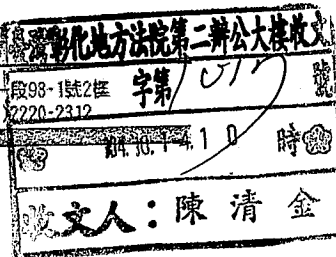 彰化地方法院第二辦公大樓收文
段98-1號2樓 字第 號
2220-2312
104.10.14 10 時
收文人：陳清金